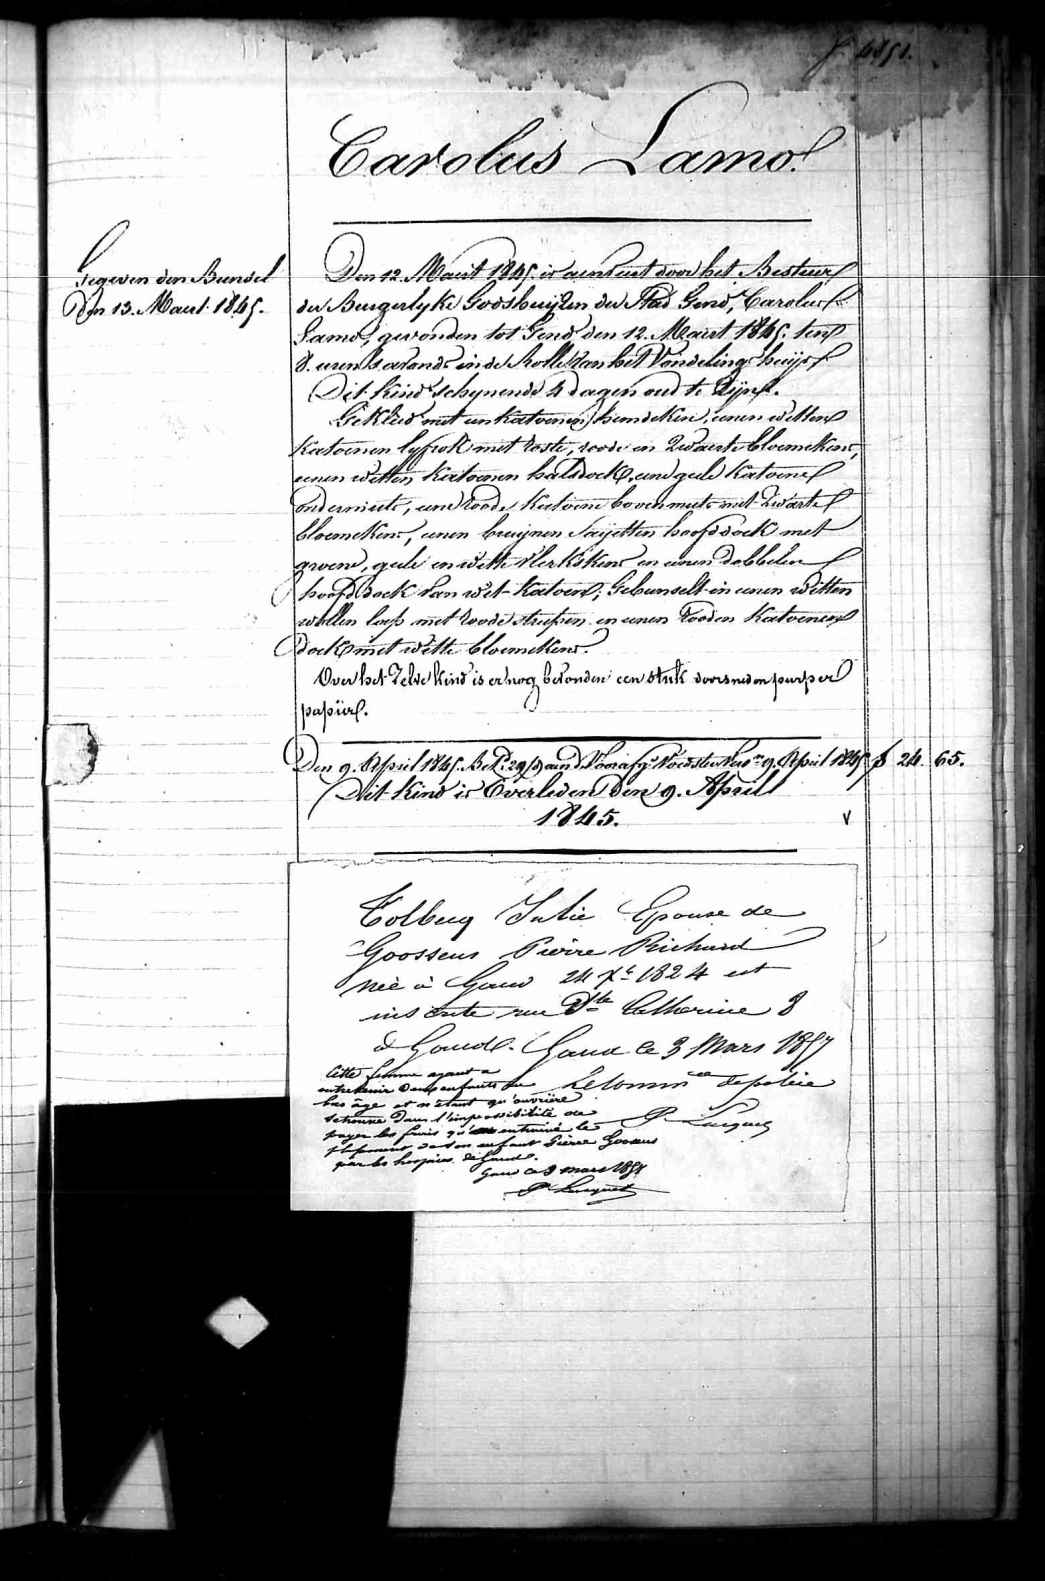 Carolus Lamo.
Gegeven den Bunsel
Den 13. Maert 1845.
Den 12. Maert 1845. is aenveert door het Bestuur
der Burgerlyke Godshuyzen der Stad Gend, Carolus
Lamo, gevonden tot Gend den 12. Maert 1845; ten
8. uren 's avonds in de Rolle van het Vondelings huijs
Dit kind schynende 4 dagen oud te zyn.
Gekleed met een katoenen hemdeken, eenen witten
katoenen lyfrok met roste, roode en zwaerte bloemekens,
eenen witten katoenen halsdoek, eene geele katoene
ondermuts, eene roode katoene bovenmuts met zwarte
bloemekens, eenen bruynen sayetten hoofddoek met
groene, geele en witte vlerkskens en eenen dobbelen
hoofddoek van wit katoen; Gebunselt in eenen witten
wollen lap met roode streepen en eenen rooden katoenen
doek met witte bloemekens.
Over het zelve kind is er nog bevonden een stuk doorsneden purper
papier.
Den 9. April 1845. Bet. 29/9 aen Voorafg. Voedster Vers. 9. April 1845 f 24 65.
Dit kind is Overleden Den 9. April
1845.
v
Tolbucq Julie Epouse de
Goossens Pierre Richard
née à Gand 24 Xe 1824 est
inscrite rue Ste Catherine 8
à Gand. Gand ce 3 Mars 1857
Le Commre de police
P. Lucquet
Cette femme ayant a
entretenir deux enfants en
bas âge et n'étant qu'ouvrière
se trouve dans l'impossibilité de
payer les frais qu'entraine le
placement de son enfant Pierre Goossens
par les hospices de Gand.
Gand ce 3 mars 1857
P. Lucquet